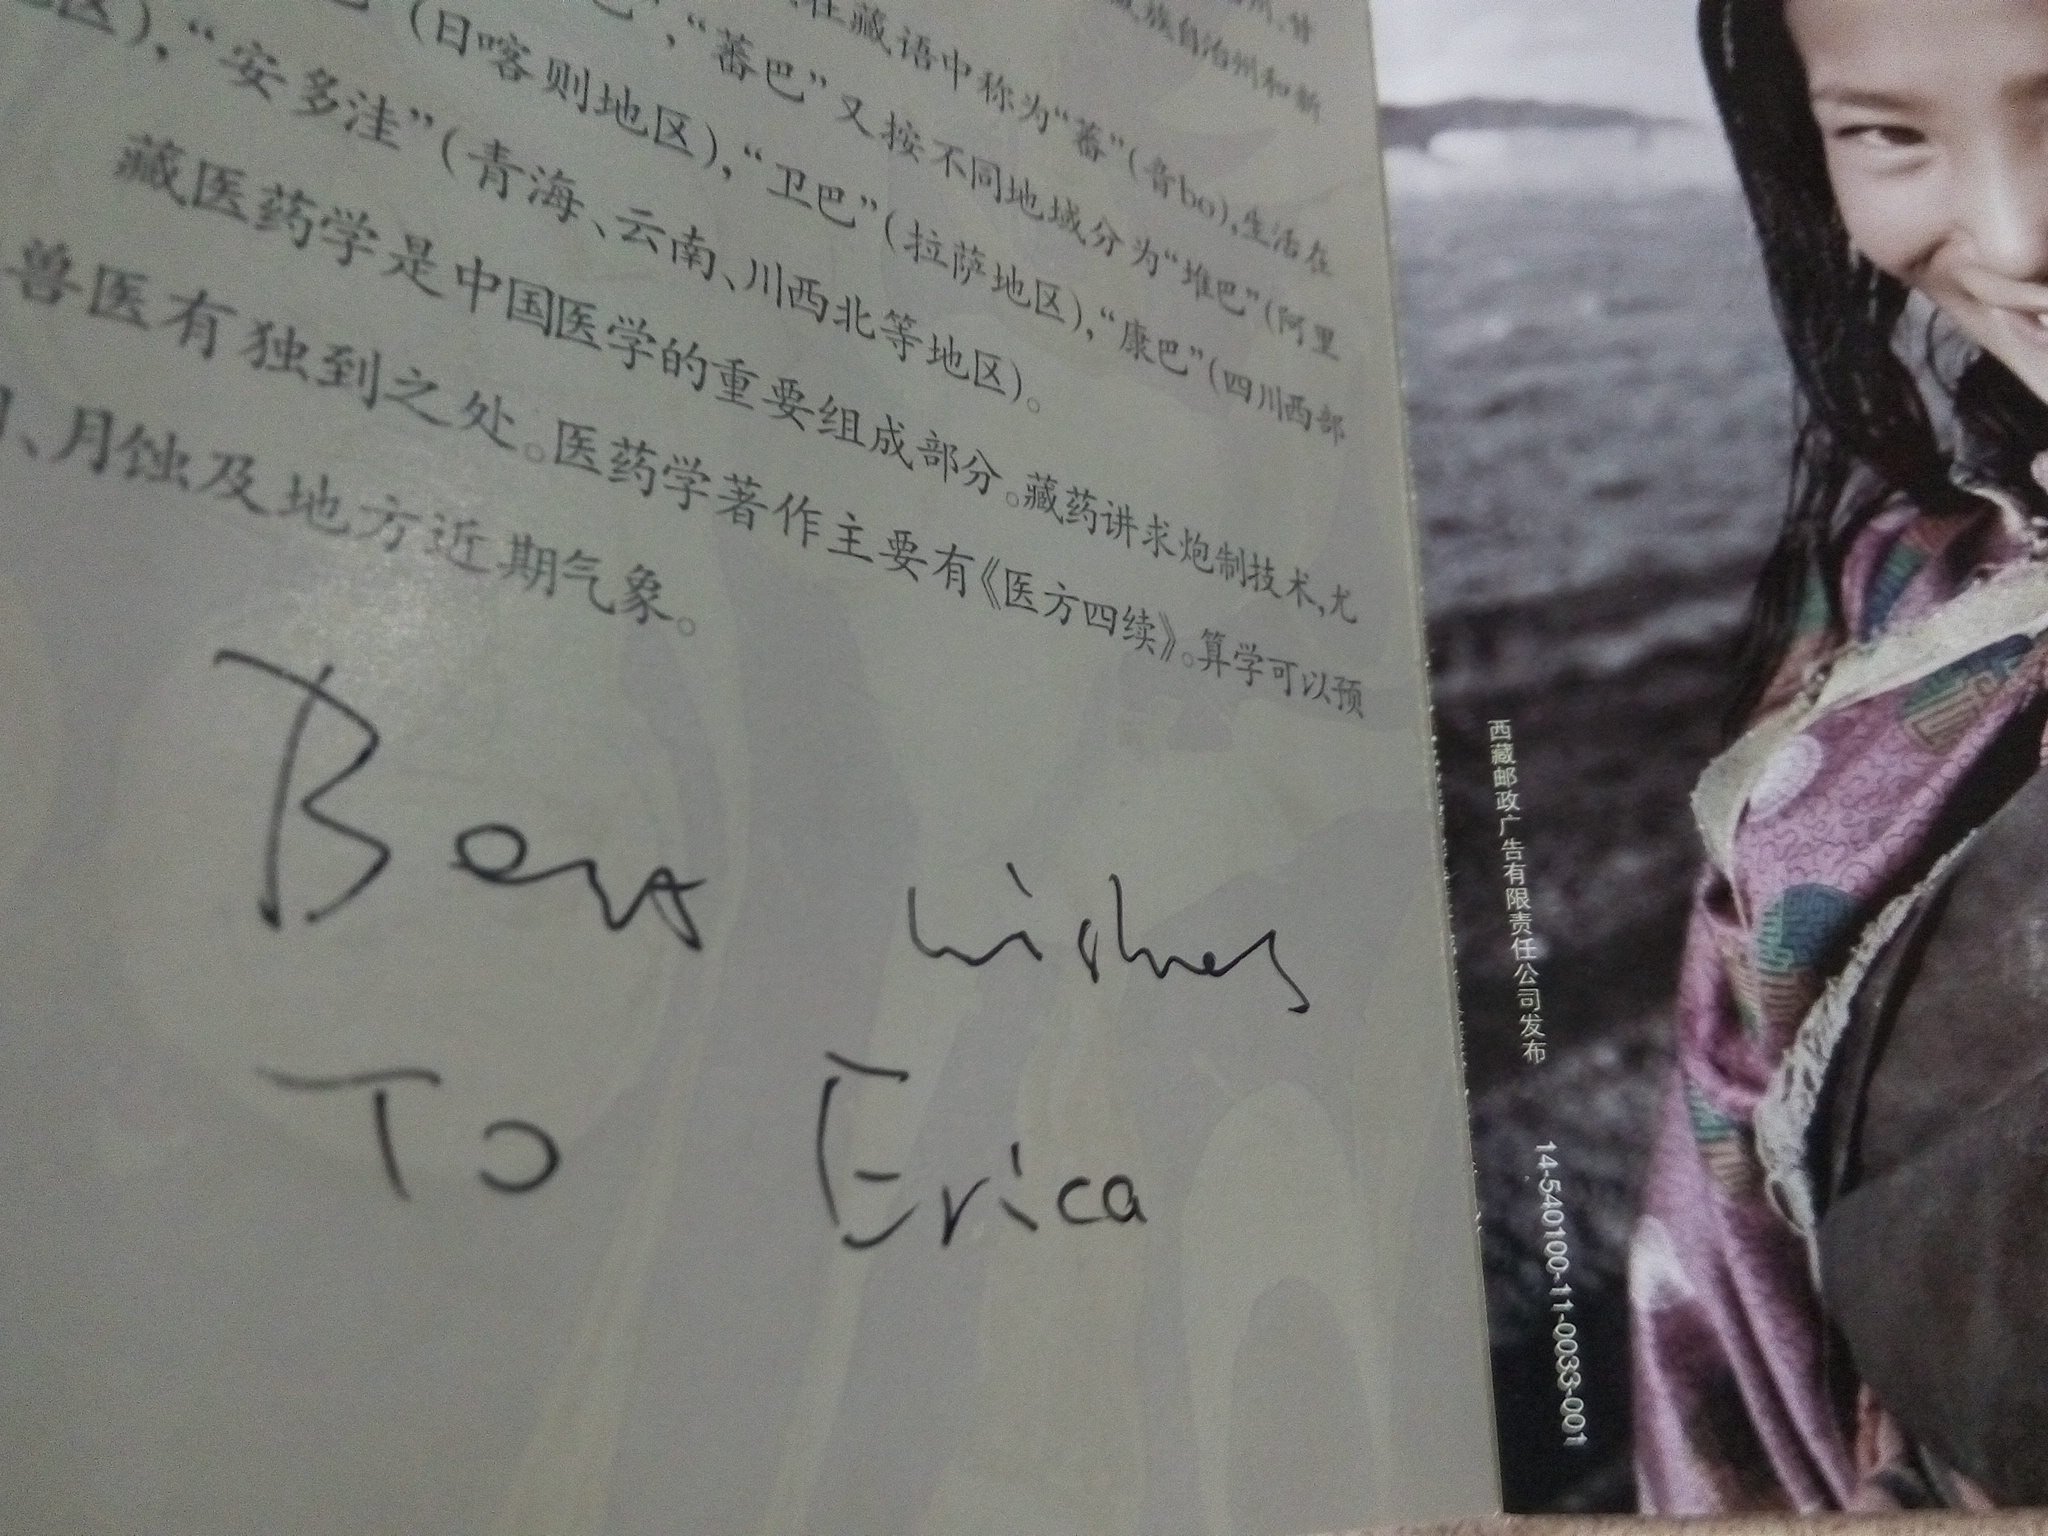 族自治州和新
在藏语中称为“蕃”(音bo),生活在
“蕃巴”又按不同地域分为“堆巴”(阿里
(日喀则地区),“卫巴”(拉萨地区),“康巴”(四川西部
区),“安多洼”(青海、云南、川西北等地区)。
藏医药学是中国医学的重要组成部分。藏药讲求炮制技术,尤
兽医有独到之处。医药学著作主要有《医方四续》。算学可以预
、月蚀及地方近期气象。
Best wishes
To Erica
西藏邮政广告有限责任公司发布
14-540100-11-0033-001